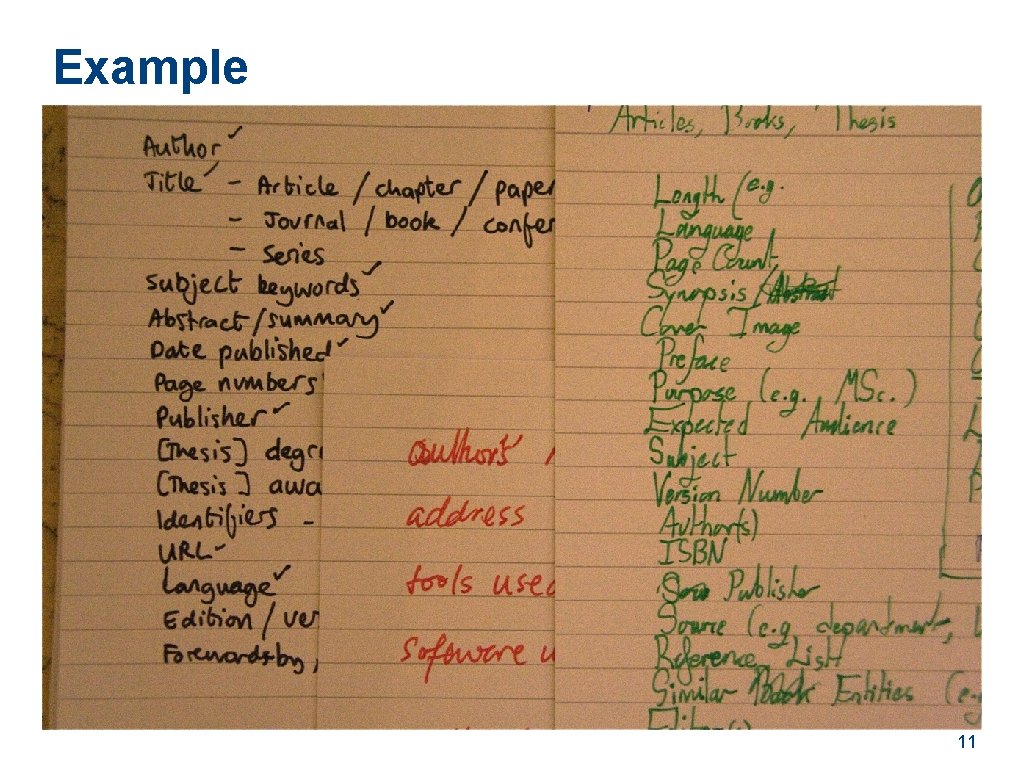 Example
Author ✓
Title ✓ - Article / chapter / paper
- Journal / book / confer
- Series
Subject keywords ✓
Abstract/summary ✓
Date published ✓
Page numbers
Publisher ✓
[Thesis] degr
[Thesis] awa
Identifiers -
URL -
Language ✓
Edition / ver
Forewordsby,
authors
address
tools used
Software u
Articles, Books, Thesis
Length (e.g.
Language
Page Count
Synopsis / Abstract
Cover Image
Preface
Purpose (e.g. MSc.)
Expected Audience
Subject
Version Number
Author(s)
ISBN
Publisher
Source (e.g. department,
Reference List
Similar Book Entities (e.g
Editor(s)
11